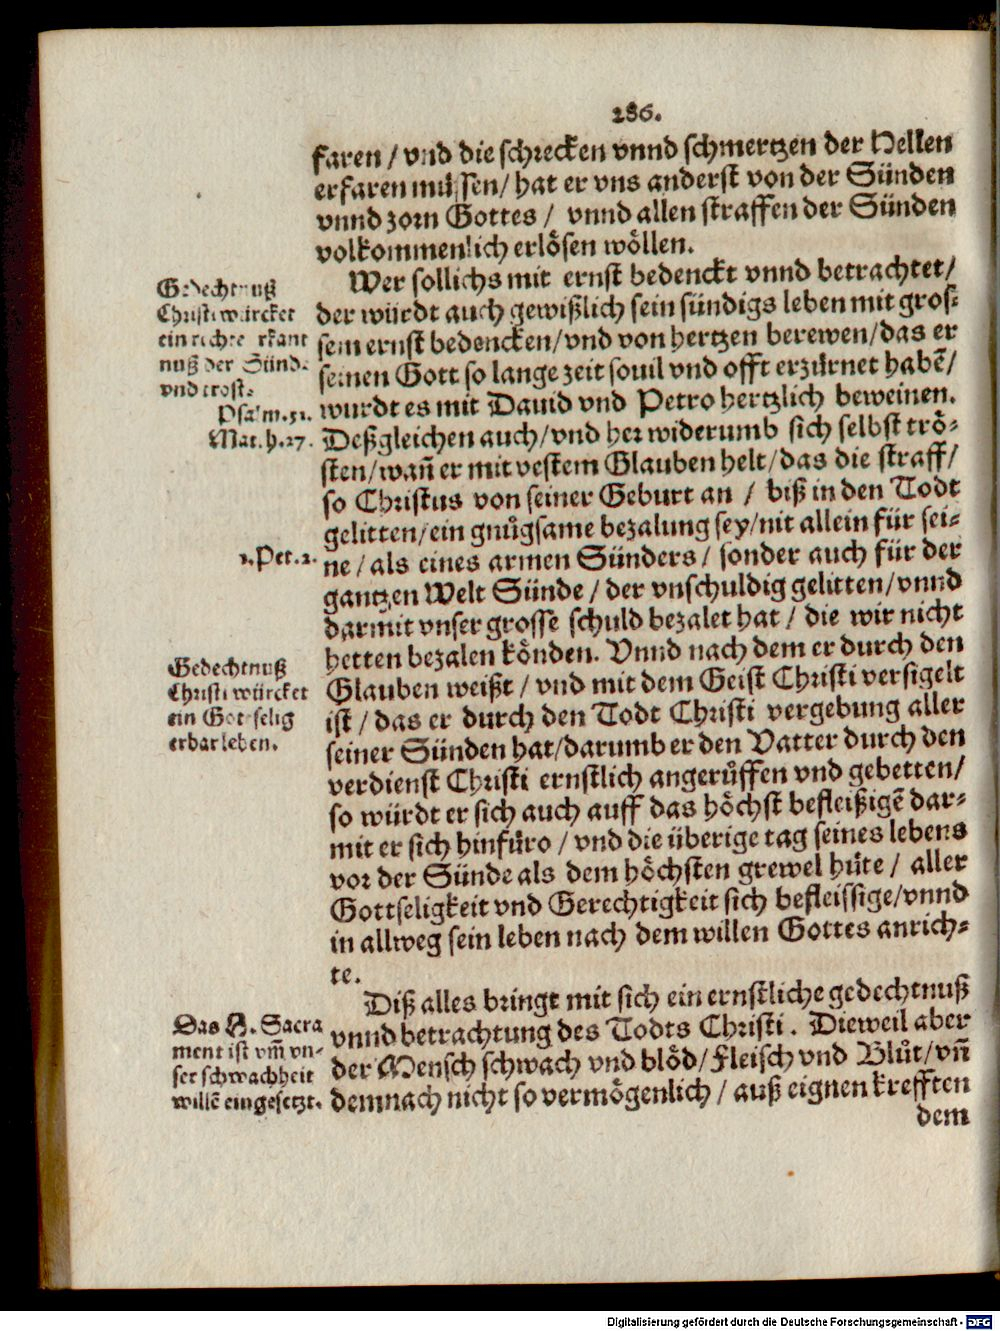 286.
faren / vnd die schrecken vnnd schmertzen der Hellen
erfaren müssen / hat er vns anderst von der Sünden
vnnd zorn Gottes / vnnd allen straffen der Sünden
volkommenlich erlösen wöllen.
Wer sollichs mit ernst bedenckt vnnd betrachtet /
der würdt auch gewißlich sein sündigs leben mit gros-
sem ernst bedencken / vnd von hertzen berewen / das er
seinen Gott so lange zeit souil vnd offt erzürnet habē /
wurdt es mit Dauid vnd Petro hertzlich beweinen.
Deßgleichen auch / vnd her widerumb sich selbst trö-
sten / wañ er mit vestem Glauben helt / das die straff /
so Christus von seiner Geburt an / biß in den Todt
gelitten / ein gnůgsame bezalung sey / nit allein für sei-
ne / als eines armen Sünders / sonder auch für der
gantzen Welt Sünde / der vnschuldig gelitten / vnnd
darmit vnser grosse schuld bezalet hat / die wir nicht
hetten bezalen könden. Vnnd nach dem er durch den
Glauben weißt / vnd mit dem Geist Christi versigelt
ist / das er durch den Todt Christi vergebung aller
seiner Sünden hat / darumb er den Vatter durch den
verdienst Christi ernstlich angerůffen vnd gebetten /
so würdt er sich auch auff das höchst befleißigē dar-
mit er sich hinfüro / vnd die überige tag seines lebens
vor der Sünde als dem höchsten grewel hüte / aller
Gottseligkeit vnd Gerechtigkeit sich befleissige / vnnd
in allweg sein leben nach dem willen Gottes anrich-
te.
Diß alles bringt mit sich ein ernstliche gedechtnuß
vnnd betrachtung des Todts Christi. Dieweil aber
der Mensch schwach vnd blöd / Fleisch vnd Blůt / vñ
demnach nicht so vermögenlich / auß eignen krefften
dem
Gedechtnuß
Christi würcket
ein rechte erkant
nuß der Sünd.
vnd trost.
Psalm. 51.
Mat. h. 27.
1. Pet. 2.
Gedechtnuß
Christi würcket
ein Gotselig
erbar leben.
Das H. Sacra
ment ist vm̃ vn-
ser schwachheit
willē eingesetzt.
Digitalisierung gefördert durch die Deutsche Forschungsgemeinschaft - DFG